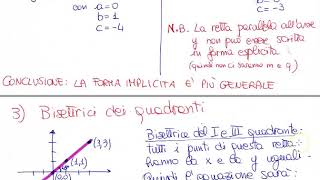 con a=0
b=1
c=-4
c=-3
N.B. La retta parallela all'asse
y non può essere scritta
in forma esplicita
(quindi non ci saranno m e q)
CONCLUSIONE: LA FORMA IMPLICITA E' PIÙ GENERALE
3) Bisettrici dei quadranti
(3,3)
(1,1)
(0,0)
Bisettrice del I e III quadrante:
tutti i punti di questa retta
hanno la x e la y uguali.
Quindi l'equazione sarà: